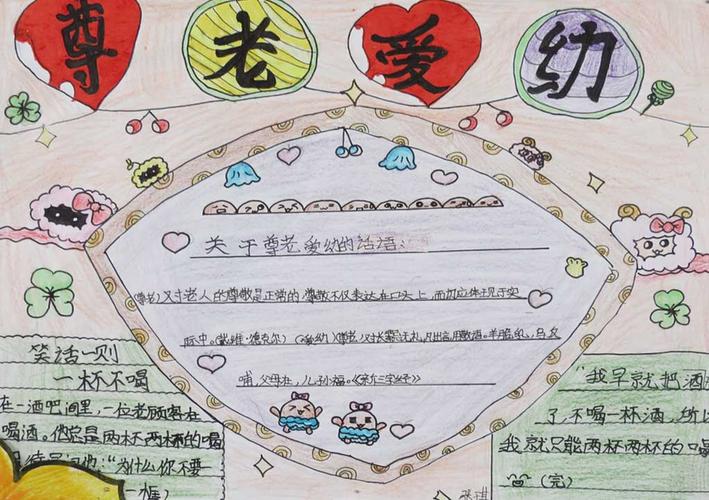 尊老爱幼
关于尊老爱幼的话语:
(尊老)对老人的尊敬是正常的,尊敬不仅表达在口头上,而且应体现于实
际中。(戴维·德克尔)(爱幼)尊老,对长
哺,父母在,儿孙福。
笑话一则
一杯不喝
在一酒吧间里,一位老顾客在
喝酒,他总是两杯两杯的喝
“为什么你不要
一杯
“我早就把酒
了,不喝一杯酒,所以
我就只能两杯两杯的喝
(完)